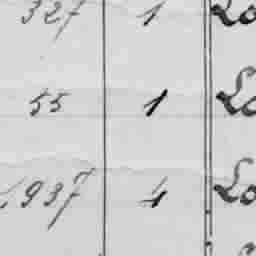 327 1 Lo
55 1 Lo
937 4 Lo